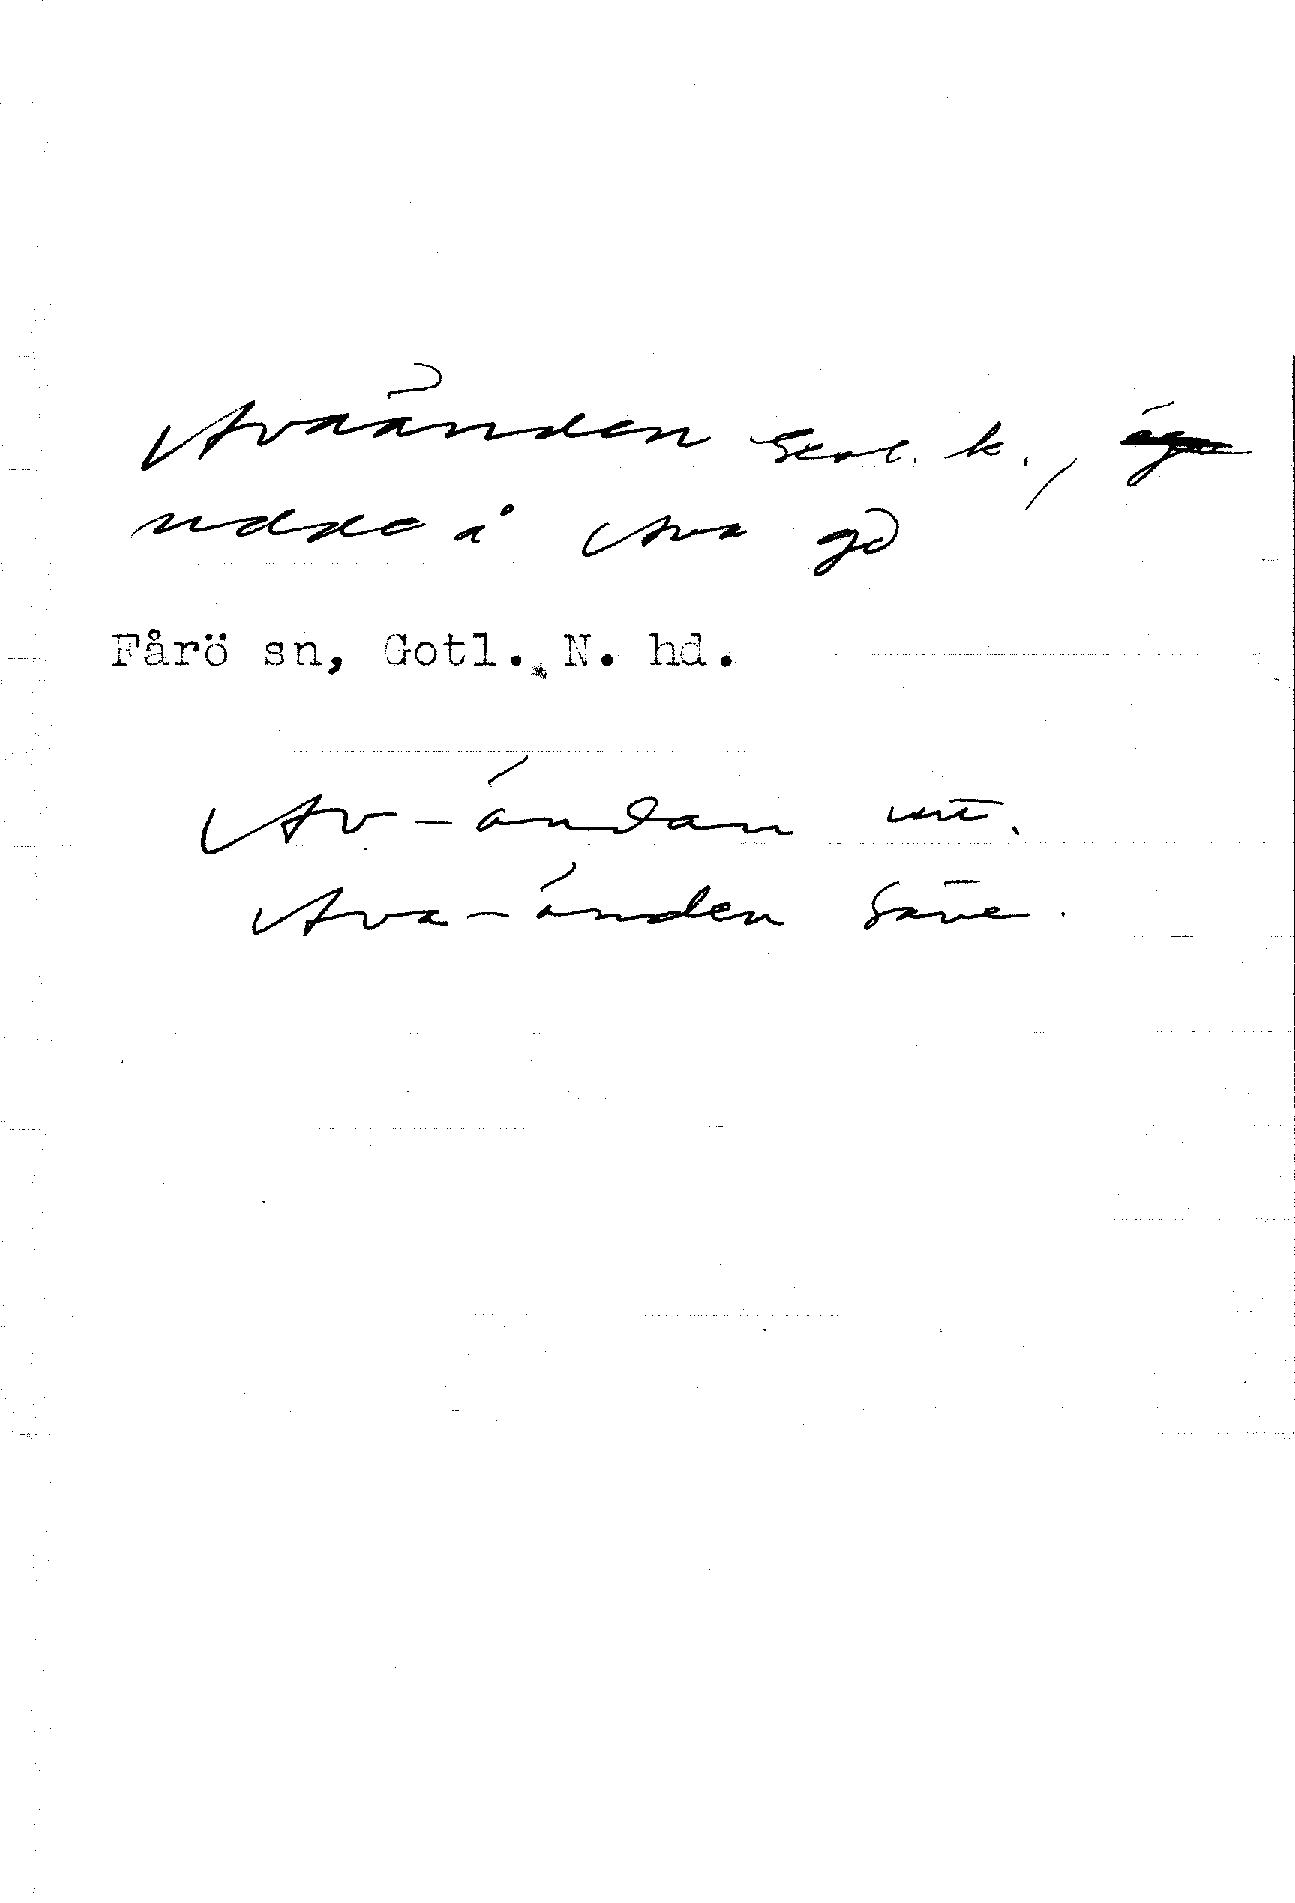 Avaänden Ekol. k.,
udde å Ava gd
Fårö sn, Gotl. N. hd.
Av-ändan utt.
Ava-änden Säve.